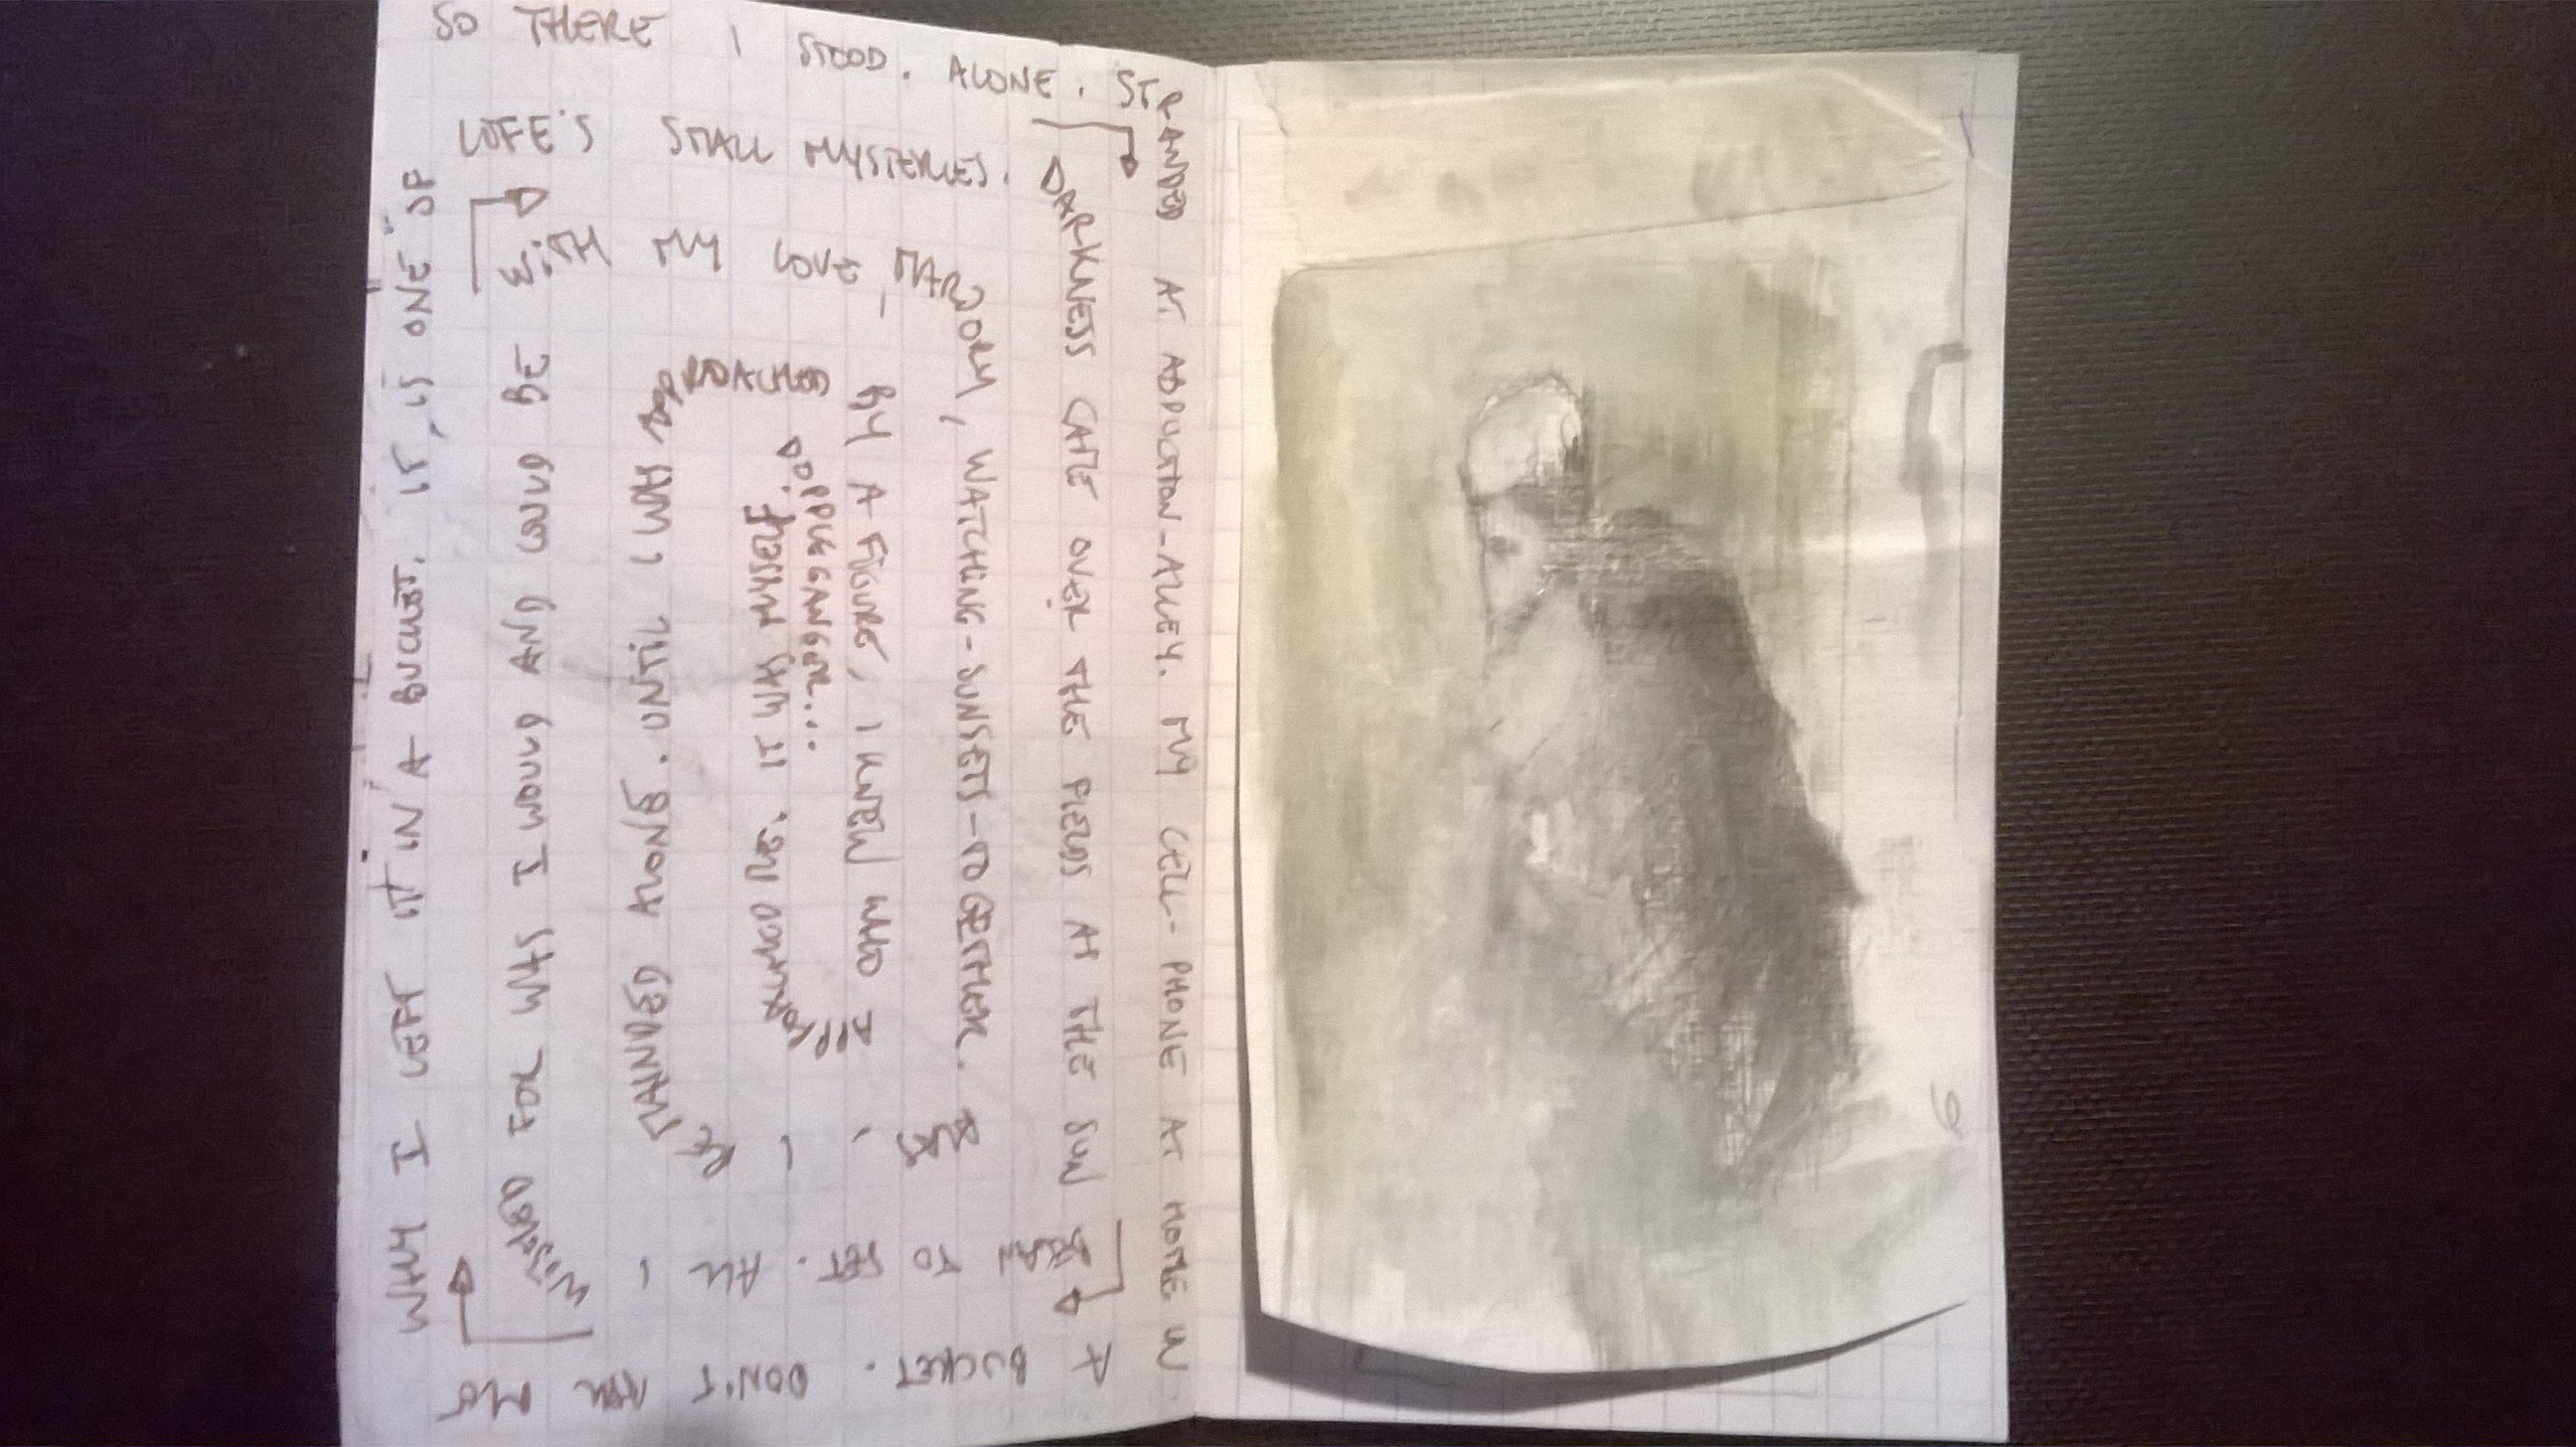 SO THERE I STOOD. ALONE. STRANDED
AT ABDUCTION-ALLEY. MY CELL-PHONE AT HOME IN
A BUCKET. DON'T ASK ME
WHY I LEFT IT IN A BUCKET. IT, IS ONE OF
LIFE'S SMALL MYSTERIES.
DARKNESS CAME OVER THE FIELDS AS THE SUN
TO SET. ALL I
WISHED FOR WAS I WOULD AND COULD BE
WITH MY LOVE MARJORY,
WATCHING-SUNSETS-TOGETHER.
I
REMAINED ALONE. UNTIL I WAS
APPROACHED
BY A FIGURE, I KNEW WHO I
IT WAS MYSELF
DOPPLEGANGER...
6